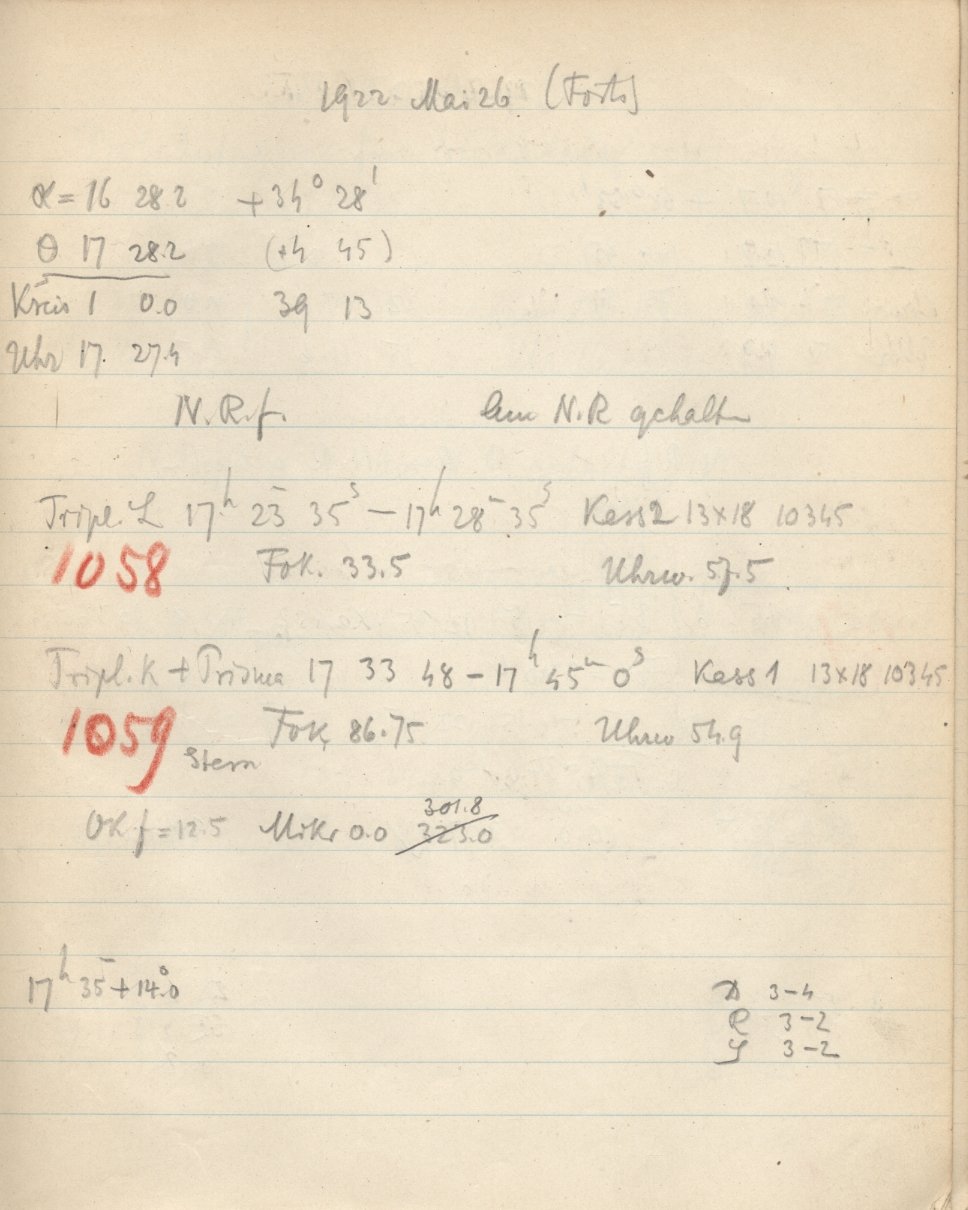 1922 Mai 26 (Forts)
α = 16 28.2 +34° 28'
θ 17 28.2 (+4 45)
Kreis 1 0.0 39 13
Uhr 17. 27.4
N.R.f. Am N.R gehalten
Tripl. L 17h 23m 35s – 17h 28m 35s Kass 2 13×18 10345
1058 Fok. 33.5 Uhrw. 57.5
Tripl. K + Prisma 17 33 48 – 17h 45m 0s Kass 1 13×18 10345
1059 Fok. 86.75 Uhrw 54.9
Stern
301.8
OK f = 12.5 Mikr 0.0 323.0
17h 35m +14.°0
D 3–4
R 3–2
S 3–2